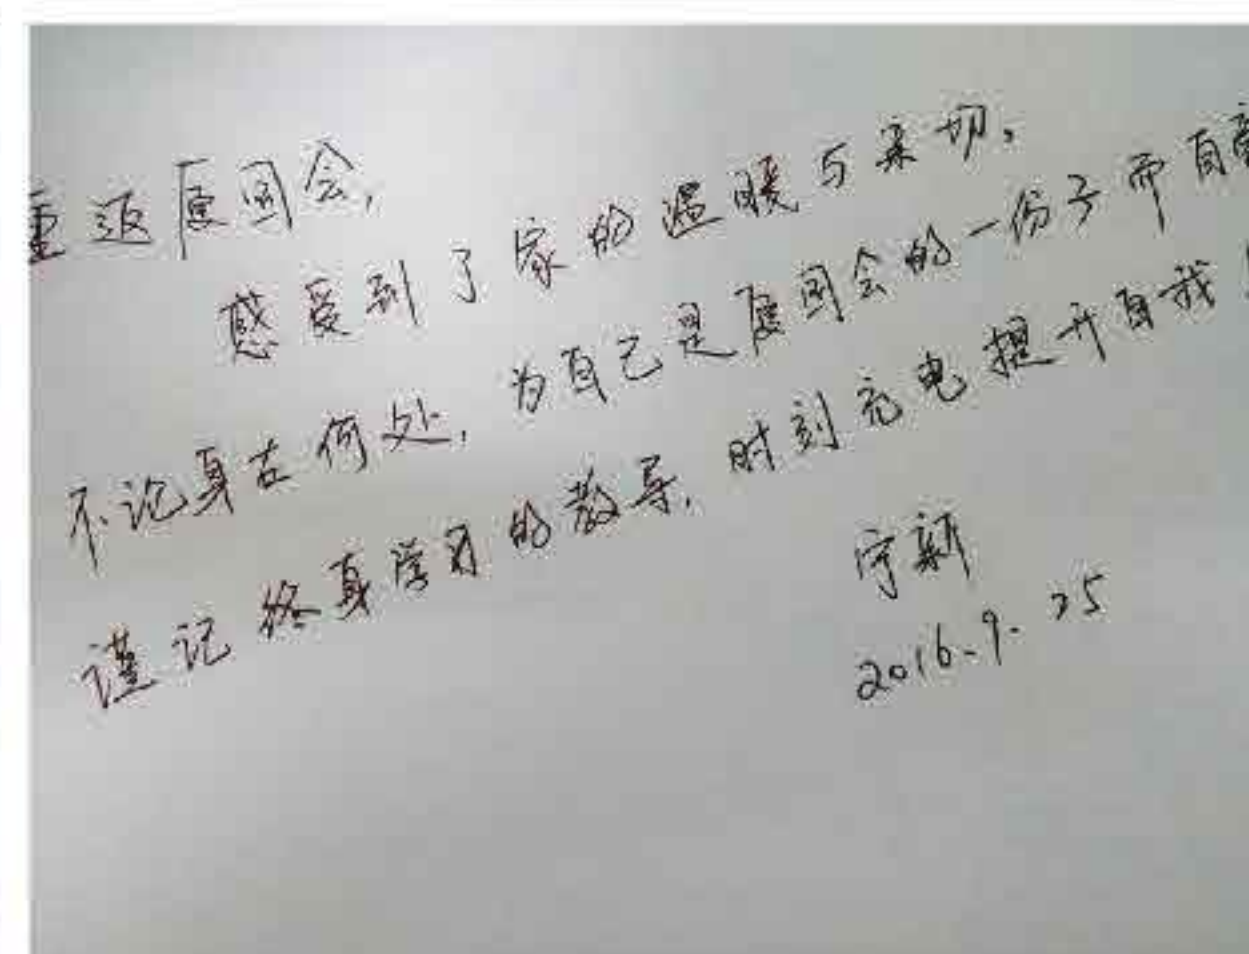 重返厦图会，
感受到了家的温暖与亲切。
不论身在何处，为自己是厦图会的一份子而自豪
谨记终身学习的教导，时刻充电提升自我！
宇新
2016.9.25